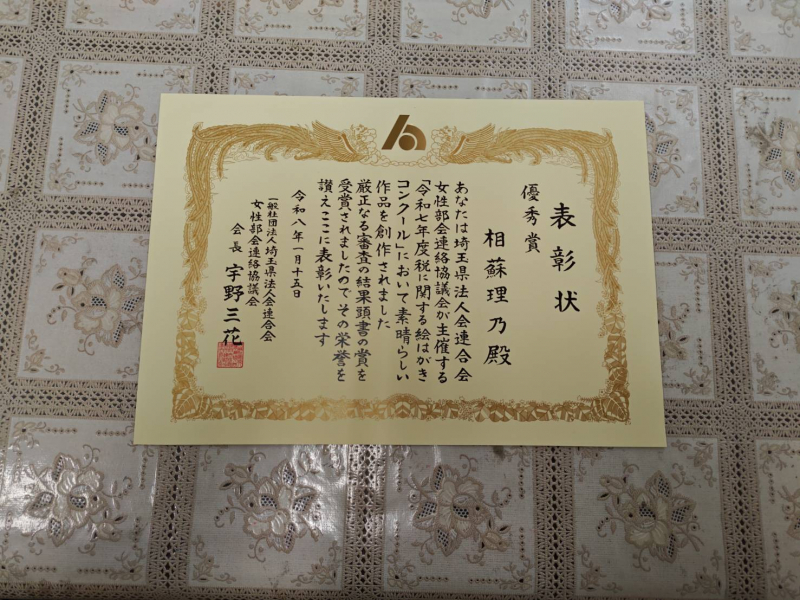 表彰状
優秀賞
相蘇理乃殿
あなたは埼玉県法人会連合会
女性部会連絡協議会が主催する
「令和七年度税に関する絵はがき
コンクール」において素晴らしい
作品を創作されました
厳正なる審査の結果頭書の賞を
受賞されましたのでその栄誉を
讃えここに表彰いたします
令和八年一月十五日
一般社団法人埼玉県法人会連合会
女性部会連絡協議会
会長 宇野三花